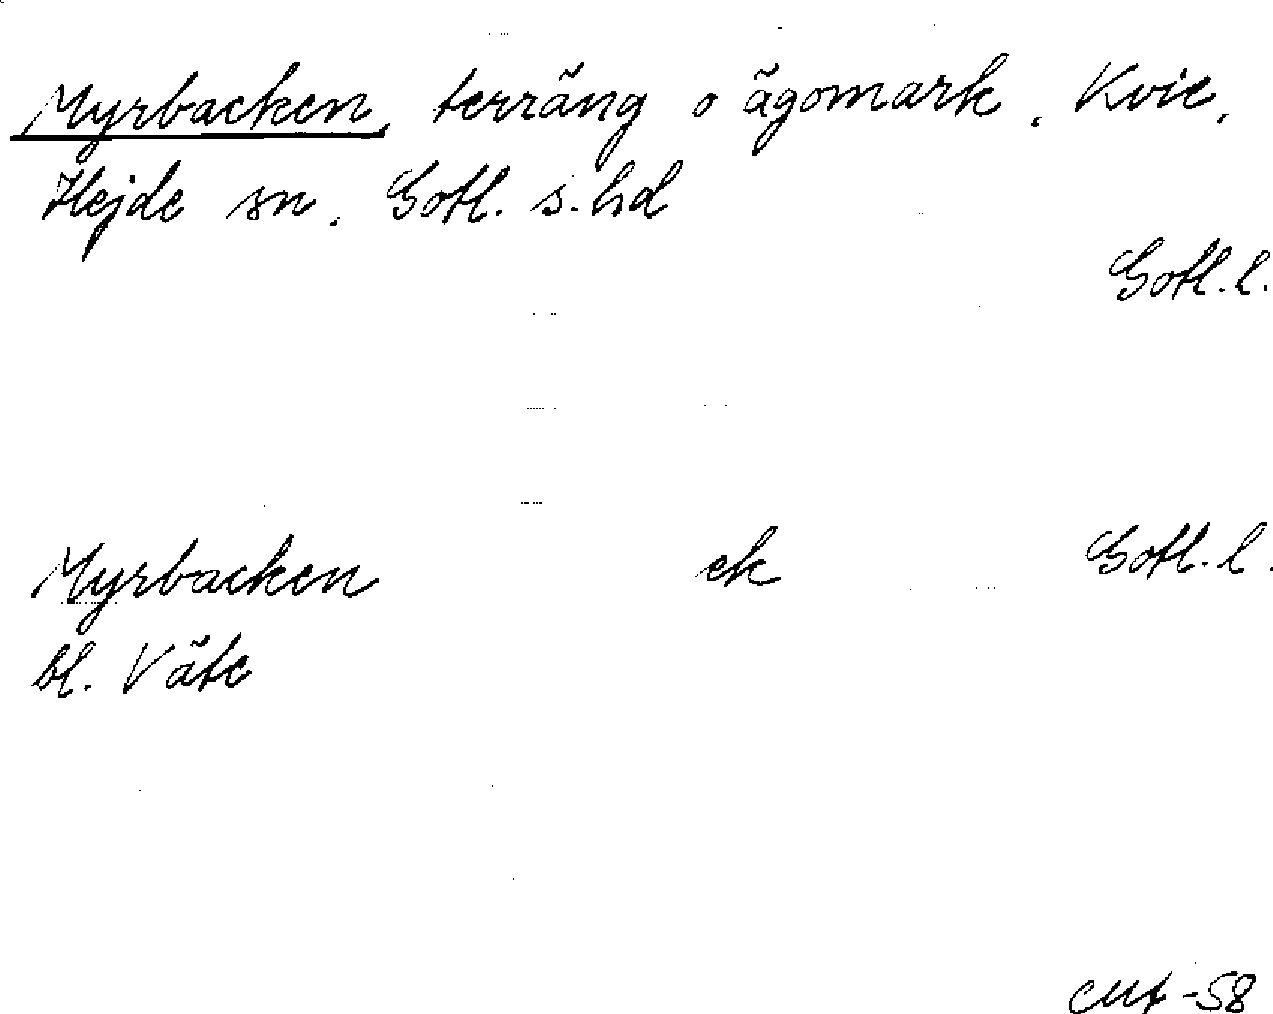 Myrbacken, terräng o ägomark. Kvie,
Hejde sn. Gotl. s. hd
Gotl. l.
Myrbacken ek Gotl. l.
bl. Väte
-58